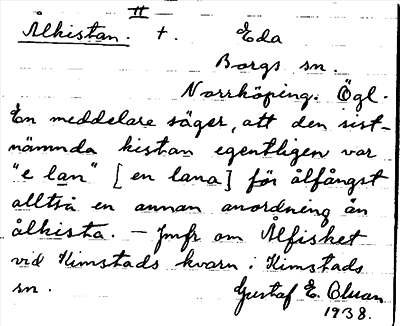 II
Ålkistan. t. Eda
Borgs sn.
Norrköping. Ögl.
En meddelare säger, att den sist-
nämnda kistan egentligen var
"e lan" [en lana] för ålfångst
alltså en annan anordning än
ålkista. — Jmfr om Ålfisket
vid Kimstads kvarn i Kimstads
sn. Gustaf E. Cluan
1938.